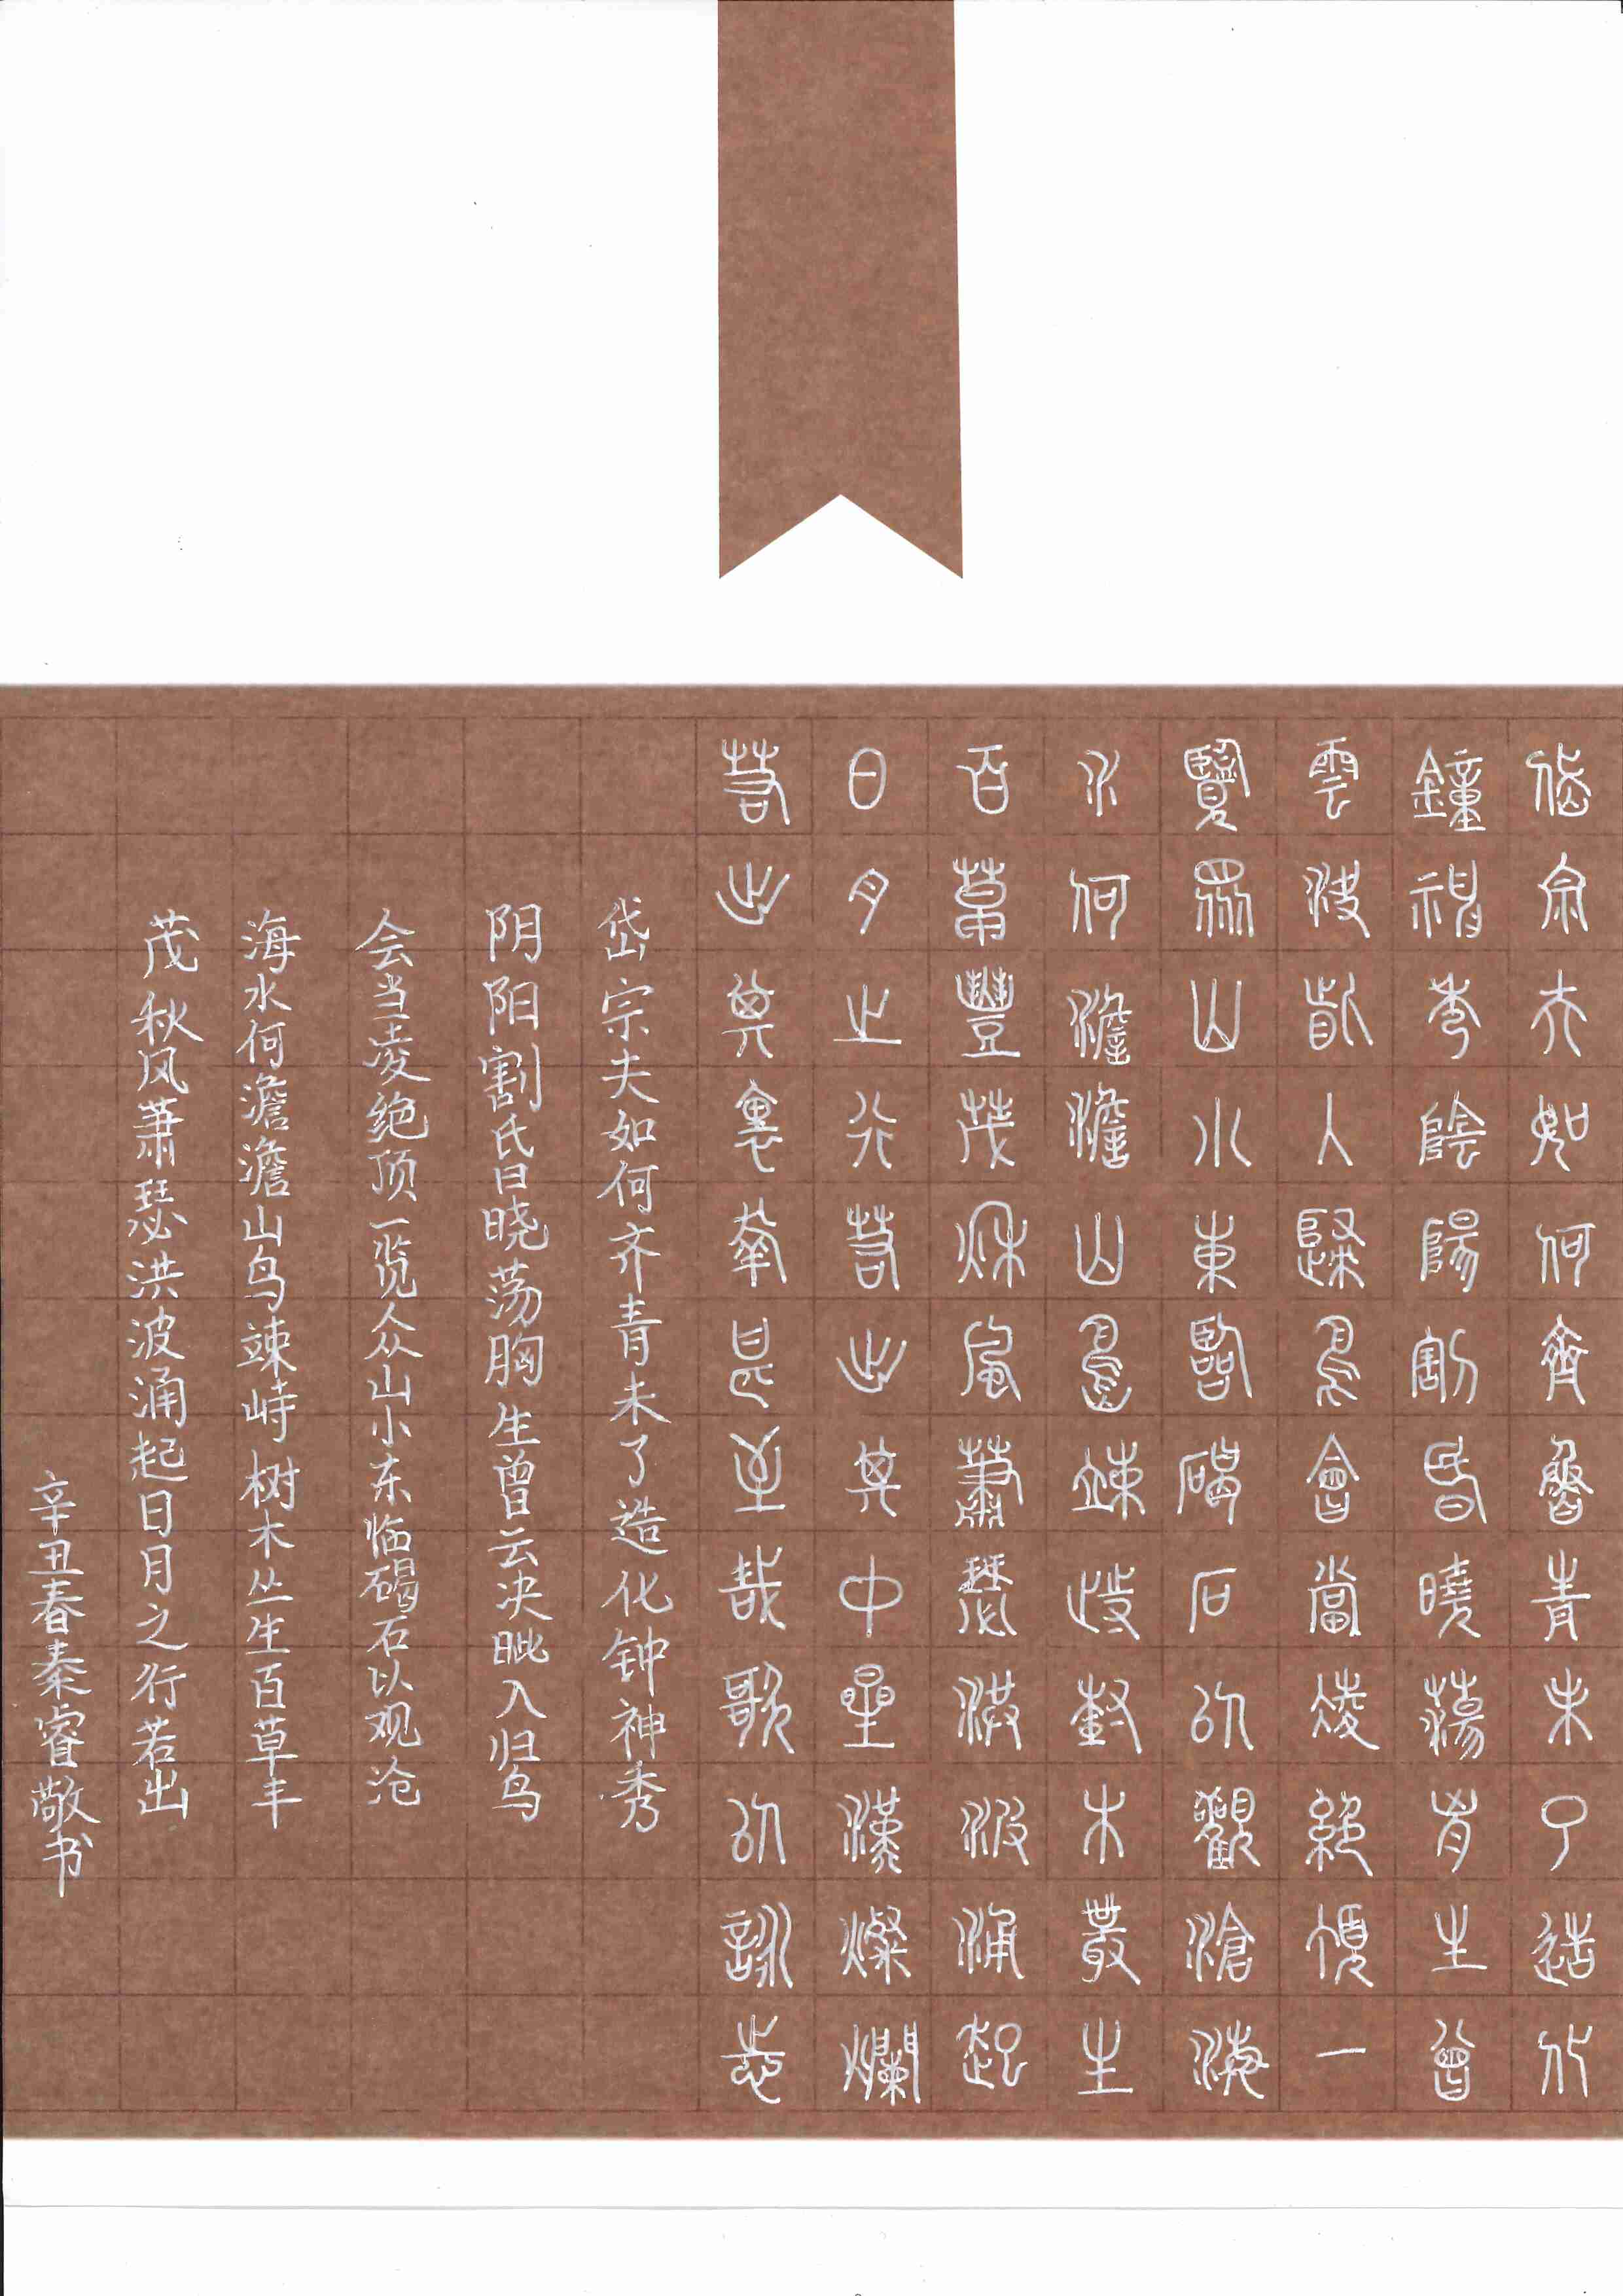 岱宗夫如何齊魯青未了造化
鐘神秀陰陽割昏曉蕩胷生曾
雲決眥入歸鳥會當凌絕頂一
覽眾山小東臨碣石以觀滄海
水何澹澹山島竦峙樹木叢生
百草豐茂秋風蕭瑟洪波涌起
日月之行若出其中星漢燦爛
若出其裏幸甚至哉歌以詠志
岱宗夫如何齐青未了造化钟神秀
阴阳割氏日晓荡胸生曾云决眦入归鸟
会当凌绝顶一览众山小东临碣石以观沧
海水何澹澹山鸟竦峙树木丛生百草丰
茂秋风萧瑟洪波涌起日月之行若出
辛丑春秦睿敬书